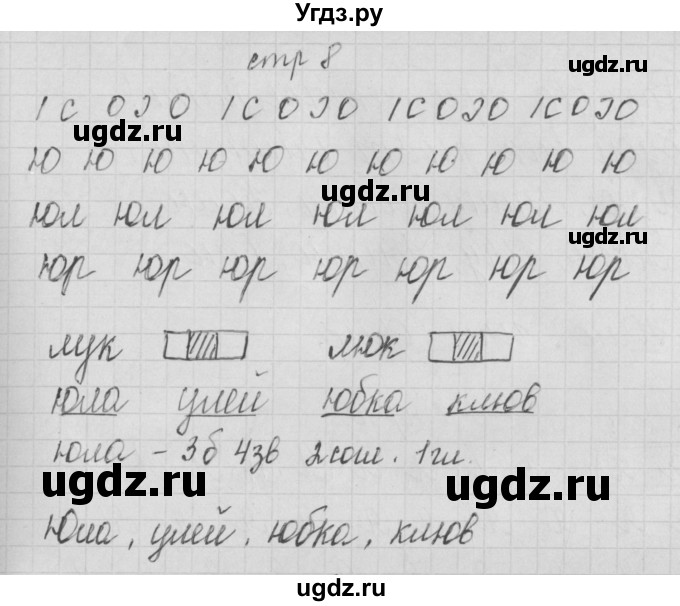 Угдз.ру
ugdz.ru
стр 8
ı с о э о ı с о э о ı с о э о ı с о э о
ugdz.ru
ugdz.ru
ю ю ю ю ю ю ю ю ю ю ю
ugdz.ru
юл юл юл юл юл юл юл
ugdz.ru
юр юр юр юр юр юр юр
лук люк
ugdz.ru
юла улей юбка клюв
юла - 3б 4зв 2сол. 1гл.
ugdz.ru
ugdz.ru
Юла, улей, юбка, клюв
ugdz.ru